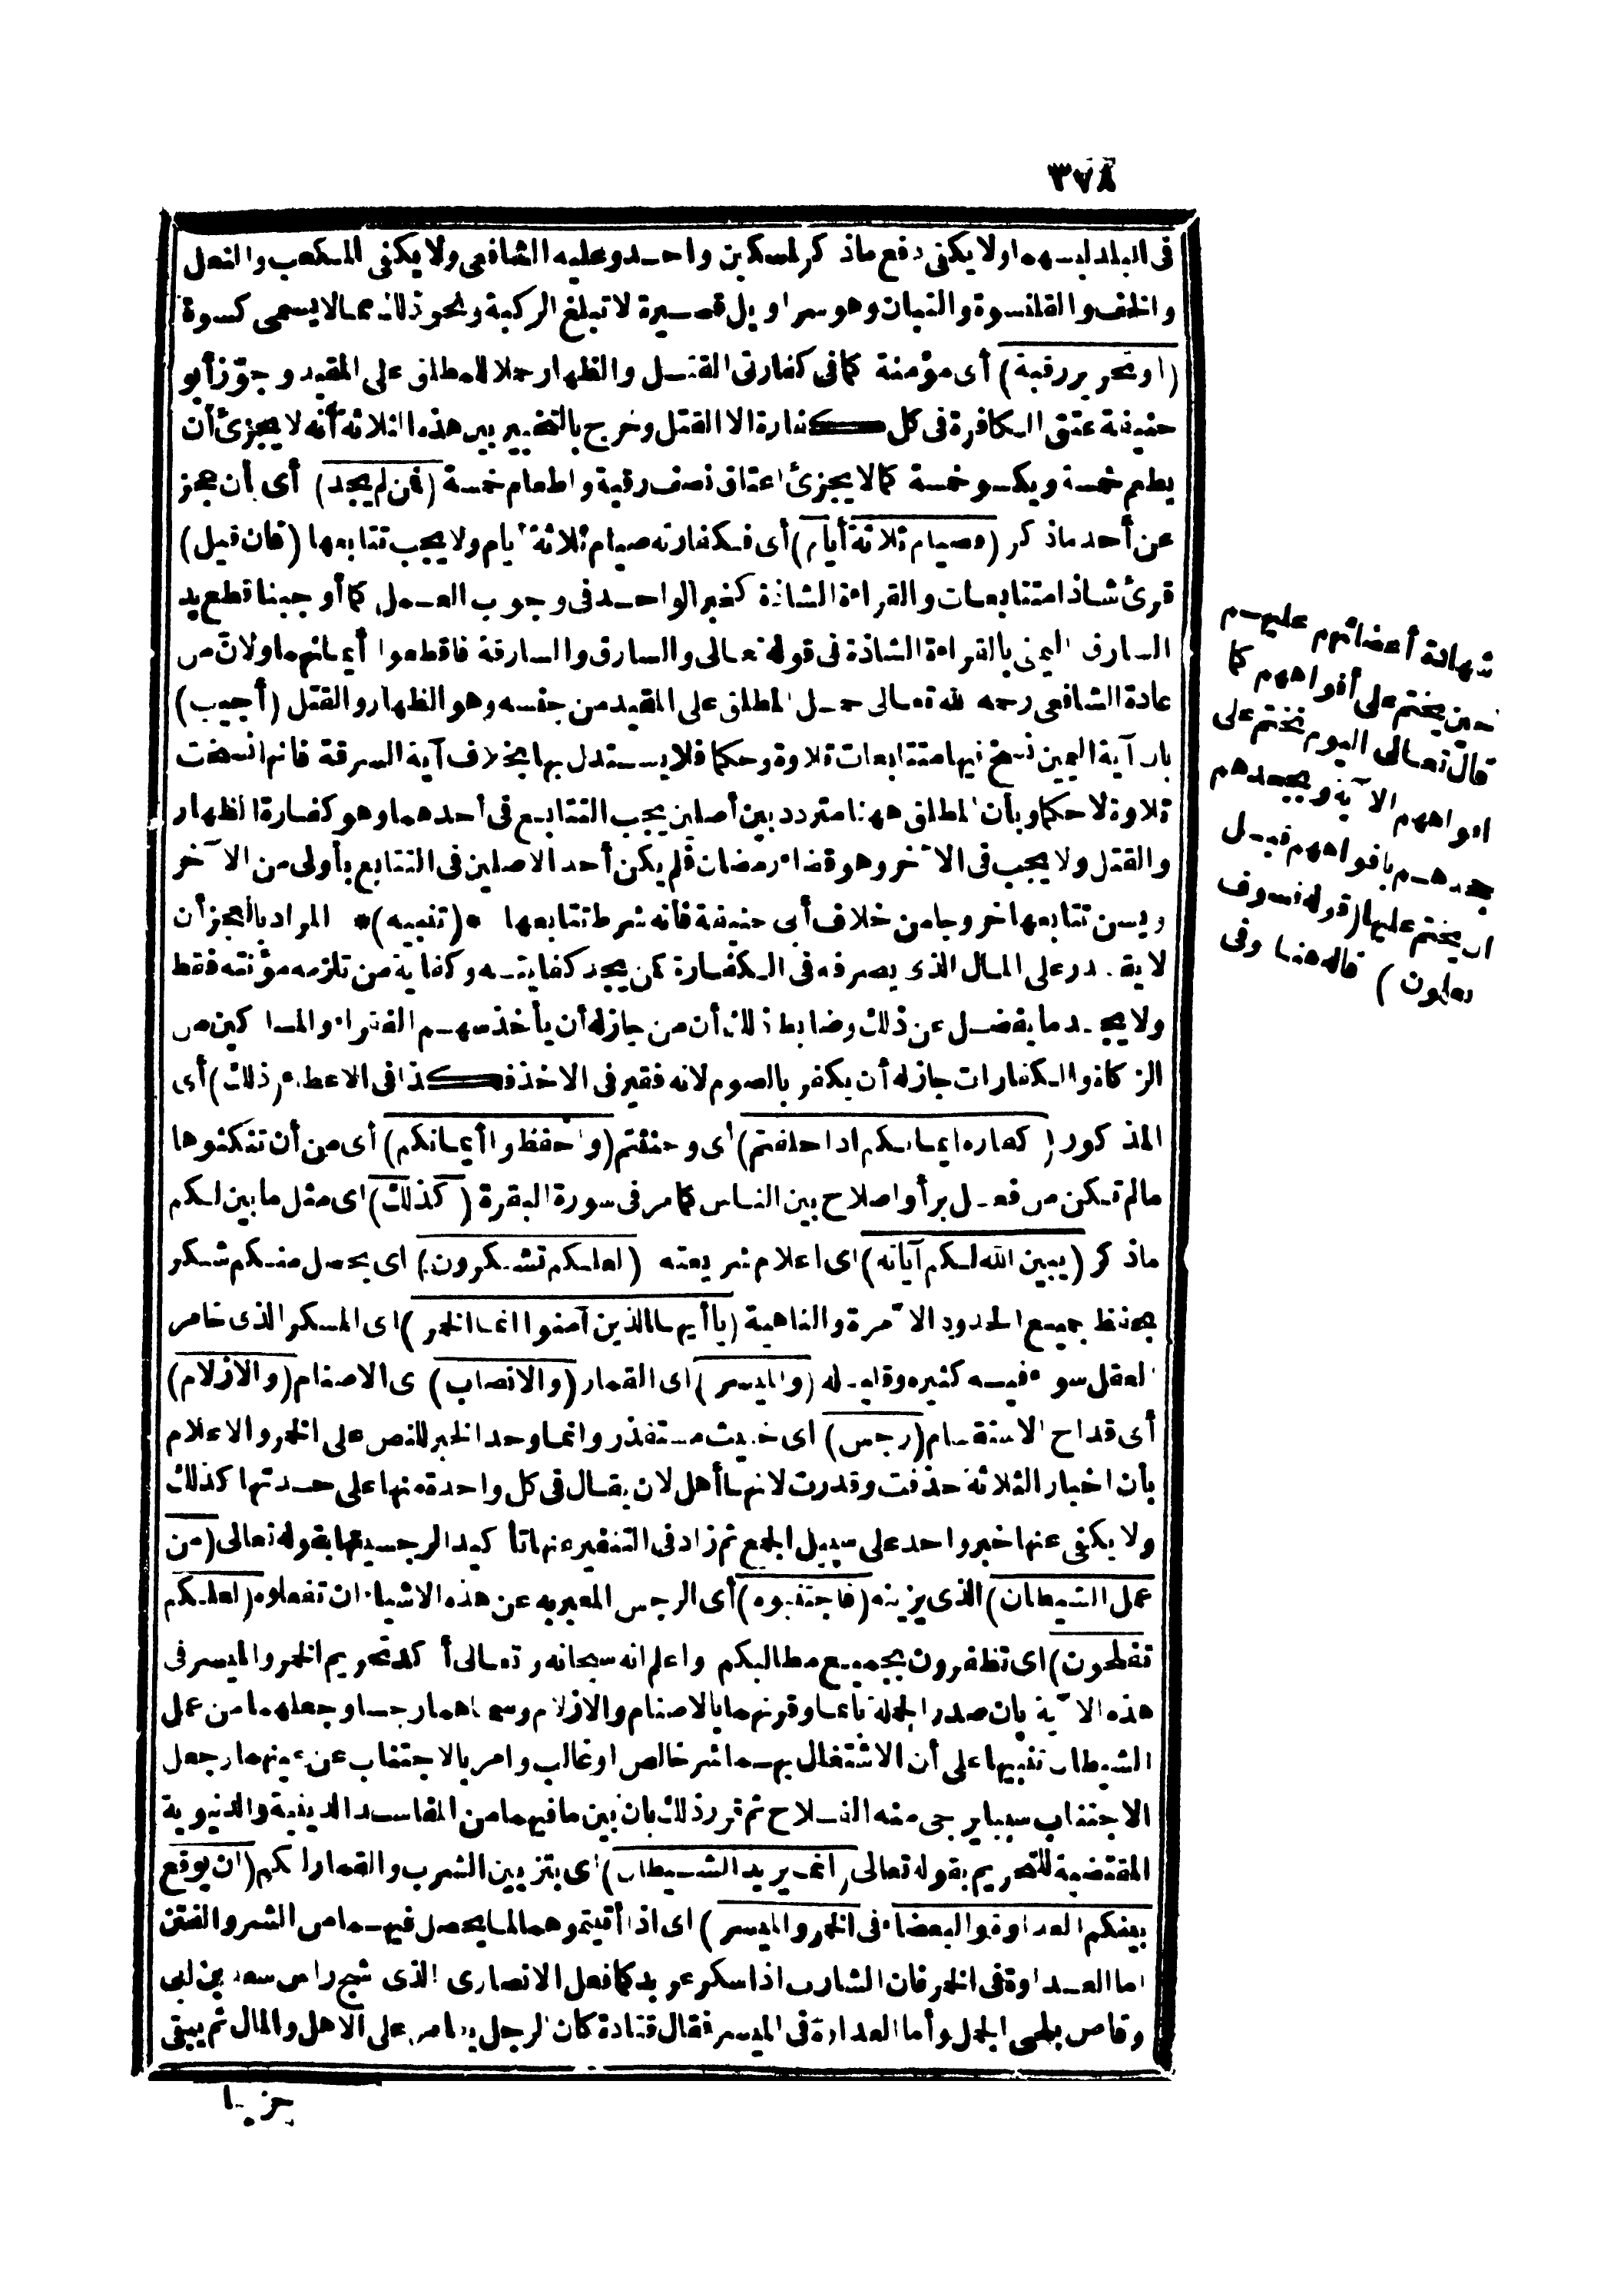 ٣٧٨
فى البلد لبسها ولا يكفى دفع ماذكر لمسكين واحد وعليه الشافعى ولا يكفى المكعب والنعل
والخف والقلنسوة والتبان وهو سراويل قصيرة لا تبلغ الركبة ونحو ذلك مما لا يسمى كسوة
(أو تحرير رقبة) أى مؤمنة كما فى كفارتى القتل والظهار حملا للمطلق على المقيد وجوّز أبو
حنيفة عتق الكافرة فى كل كفارة الا القتل وخرج بالتخيير بين هذه الثلاثة أنه لا يجزئ أن
يطعم خمسة ويكسو خمسة كما لا يجزئ اعتاق نصف رقبة واطعام خمسة (فمن لم يجد) أى بأن عجز
عن أحد ماذكر (فصيام ثلاثة أيام) أى فكفارته صيام ثلاثة أيام ولا يجب تتابعها (فان قيل)
قرئ شاذا متتابعات والقراءة الشاذة كخبر الواحد فى وجوب العمل كما أوجبنا قطع يد
السارق اليمنى بالقراءة الشاذة فى قوله تعالى والسارق والسارقة فاقطعوا أيمانهما ولان من
عادة الشافعى رحمه الله تعالى حمل المطلق على المقيد من جنسه وهو الظهار والقتل (أجيب)
بان آية اليمين نسخ فيها متتابعات تلاوة وحكما فلا يستدل بها بخلاف آية السرقة فانها نسخت
تلاوة لا حكما وبأن المطلق ههنا متردد بين أصلين يجب التتابع فى أحدهما وهو كفارة الظهار
والقتل ولا يجب فى الآخر وهو قضاء رمضان فلم يكن أحد الاصلين فى التتابع بأولى من الآخر
ويسن تتابعها خروجا من خلاف أبى حنيفة فانه شرط تتابعها *(تنبيه)* المراد بالعجز أن
لا يقدر على المال الذى يصرفه فى الكفارة كمن يجد كفايته وكفاية من تلزمه مؤنته فقط
ولا يجد ما يفضل عن ذلك وضابط ذلك أن من جاز له أن يأخذ سهم الفقراء والمساكين من
الزكاة والكفارات جاز له أن يكفر بالصوم لانه فقير فى الاخذ فكذا فى الاعطاء (ذلك) أى
المذكور (كفارة أيمانكم اذا حلفتم) أى وحنثتم (واحفظوا أيمانكم) أى من أن تنكثوها
مالم تكن من فعل بر أو اصلاح بين الناس كما مر فى سورة البقرة (كذلك) اى مثل ما بين لكم
ماذكر (يبين الله لكم آياته) اى اعلام شريعته (لعلكم تشكرون) اى يحصل منكم شكر
بحفظ جميع الحدود الآمرة والناهية (يا أيها الذين آمنوا انما الخمر) اى المسكر الذى خامر
العقل سواء فيه كثيره وقليله (والميسر) اى القمار (والانصاب) اى الاصنام (والازلام)
أى قداح الاستقسام (رجس) اى خبيث مستقذر وانما وحد الخبر للنص على الخمر والاعلام
بأن اخبار الثلاثة حذفت وقدرت لانها أهل لان يقال فى كل واحدة منها على حدتها كذلك
ولا يكفى عنها خبر واحد على سبيل الجمع ثم زاد فى التنفير عنها تأكيد الرجسيتها بقوله تعالى (من
عمل الشيطان) الذى يزينه (فاجتنبوه) أى الرجس المعبر به عن هذه الاشياء ان تفعلوه (لعلكم
تفلحون) اى تظفرون بجميع مطالبكم واعلم انه سبحانه وتعالى أكد تحريم الخمر والميسر فى
هذه الآية بان صدر الجملة بانما وقرنهما بالاصنام والازلام وسماهما رجسا وجعلهما من عمل
الشيطان تنبيها على أن الاشتغال بهما شر خالص او غالب وامر بالاجتناب عن عينهما وجعل
الاجتناب سببا يرجى منه الفلاح ثم قرر ذلك بان بين ما فيهما من المفاسد الدينية والدنيوية
المقتضية للتحريم بقوله تعالى (انما يريد الشيطان) اى بتزيين الشرب والقمار لكم (ان يوقع
بينكم العداوة والبغضاء فى الخمر والميسر) اى اذا أتيتموهما لما يحصل فيهما من الشر والفتن
اما العداوة فى الخمر فان الشارب اذا سكر عربد كما فعل الانصارى الذى شج راس سعد بن ابى
وقاص بلحى الجمل وأما العداوة فى الميسر فقال قتادة كان الرجل يقامر على الاهل والمال ثم يبقى
حزينا
شهادة أعضائهم عليهم
حين يختم على أفواههم كما
قال تعالى اليوم نختم على
افواههم الآية ويجحدهم
جحدهم بافواههم قبل
ان يختم عليها (قوله فسوف
يعلمون) قاله هنا وفى